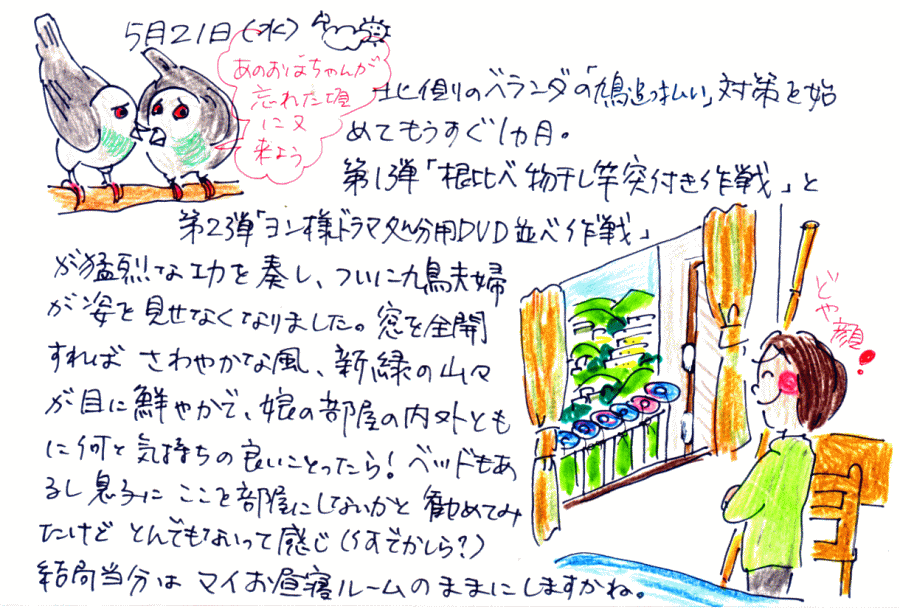 5月21日(水)
あのおばちゃんが
忘れた頃
に又
来よう
北側のベランダの「鳩追っ払い」対策を始
めてもうすぐ1ヵ月。
第1弾「根比べ物干し竿突付き作戦」と
第2弾「ヨン様ドラマ処分用DVD並べ作戦」
が猛烈な功を奏し、ついに鳩夫婦
が姿を見せなくなりました。窓を全開
すれば さわやかな風、新緑の山々
が目に鮮やかで、娘の部屋の内外とも
に何と気持ちの良いことったら!ベッドもあ
るし息子に ここを部屋にしないかと 勧めてみ
たけど とんでもないって感じ(何でかしら?)
結局当分は マイお昼寝ルームのままにしますかね。
どや顔